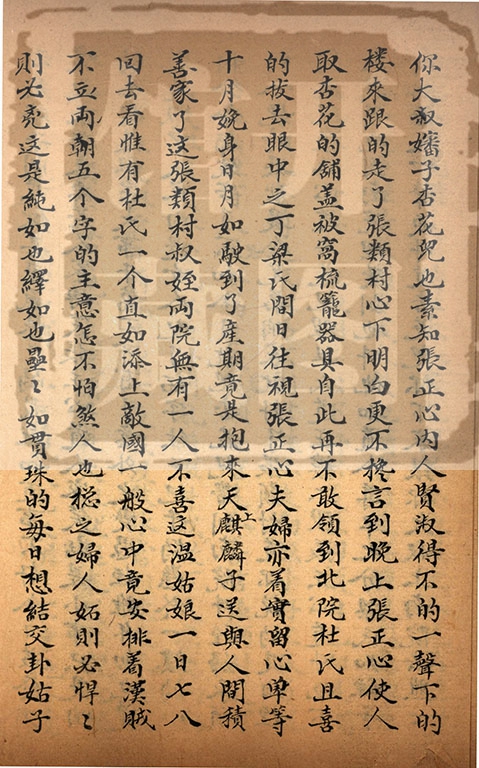 你大叔嬸子杏花兒也素知張正心內人賢淑得不的一聲下的
楼來跟的走了張類村心下明白更不搀言到晚上張正心使人
取杏花的鋪盖被窩梳籠器具自此再不敢領到北院杜氏且喜
的拔去眼中之丁梁氏閒日往視張正心夫婦亦着實留心单等
十月娩身日月如駛到了產期竟是抱來天上麒麟子送與人間積
善家了這張類村叔姪両院無有一人不喜这溫姑娘一日七八
回去看惟有杜氏一个直如添上敵國一般心中竟安排著漢賊
不立両朝五个字的主意怎不怕煞人也捴之婦人妬則必悍悍
則必亮这是純如也繹如也壘壘如貫珠的每日想結交卦姑子